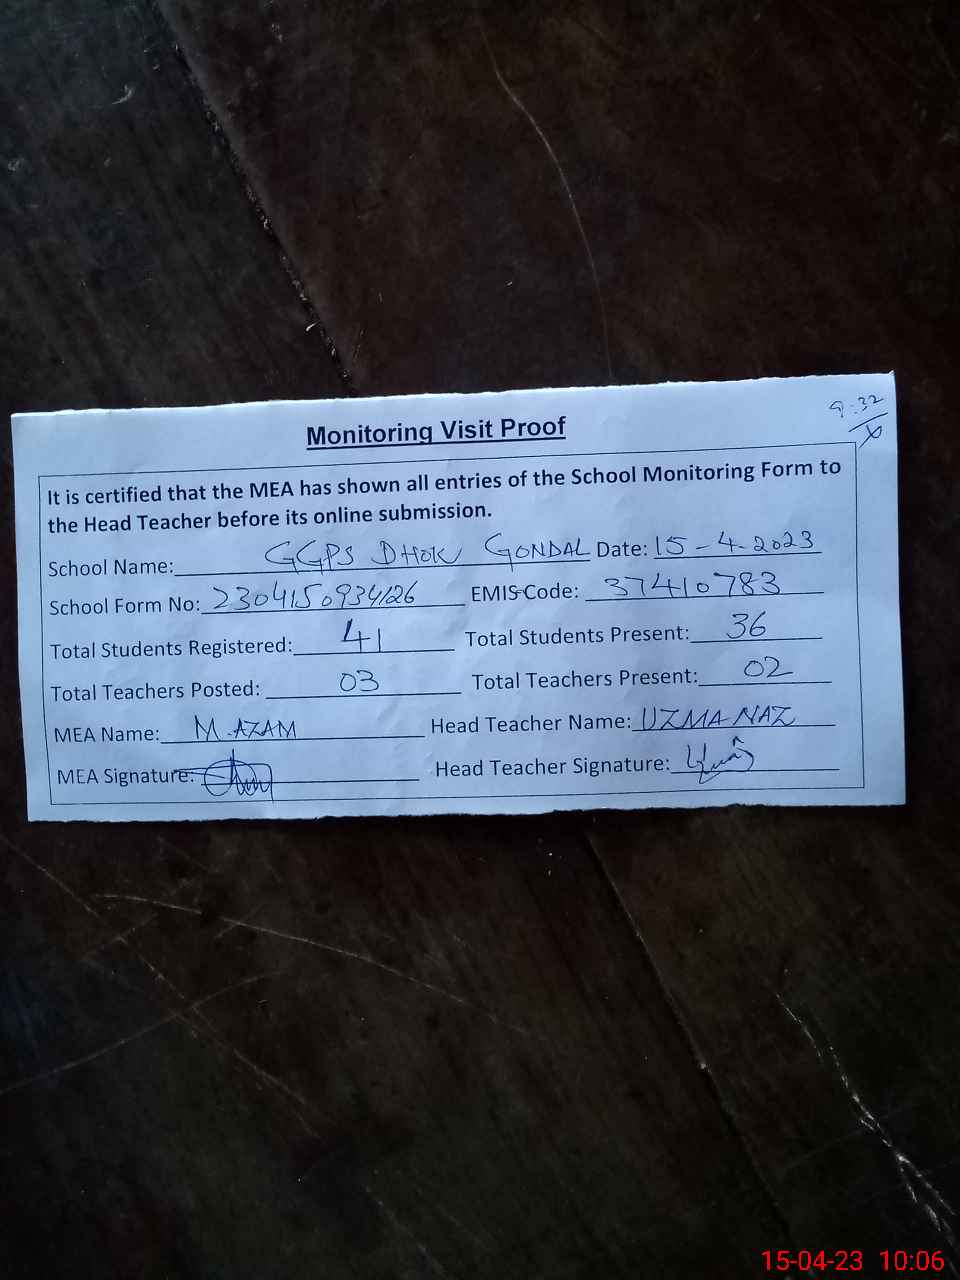 9:32
Monitoring Visit Proof
It is certified that the MEA has shown all entries of the School Monitoring Form to
the Head Teacher before its online submission.
School Name: GGPS DHOK GONDAL Date: 15-4-2023
School Form No: 2304150934126 EMIS Code: 37410783
Total Students Registered: 41 Total Students Present: 36
Total Teachers Posted: 03 Total Teachers Present: 02
MEA Name: M.AZAM Head Teacher Name: UZMA NAZ
MEA Signature: Head Teacher Signature:
15-04-23 10:06